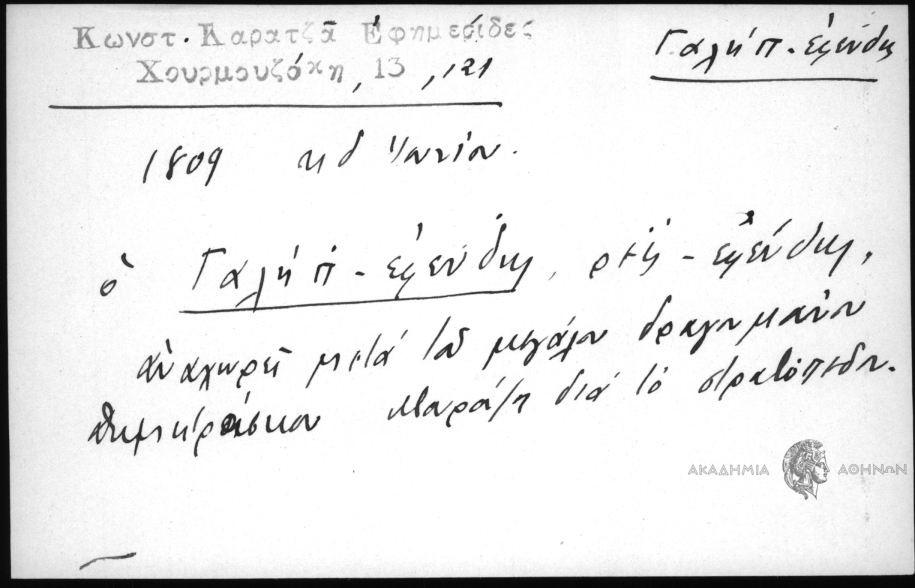 Κωνστ. Καρατζᾶ Ἐφημερίδες
Χουρμουζάκη, 13, 121
Γαλήπ-ἐφένδης
1809 κδ Ἰουνίου.
ὁ Γαλήπ-ἐφένδης, ρεΐς-ἐφένδης,
ἀναχωρεῖ μετά τοῦ μεγάλου δραγουμάνου
διά τό στρατόπεδον.
ΑΚΑΔΗΜΙΑ ΑΘΗΝΩΝ